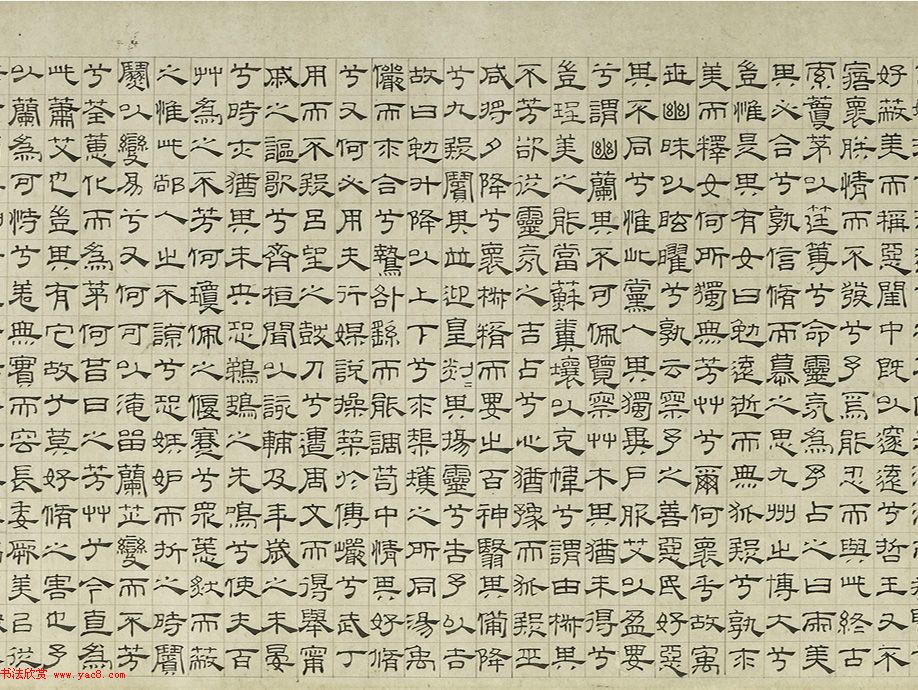 好蔽美而稱惡閨中既以邃遠兮哲王又不
寤褱朕情而不發兮予焉能忍而與此終古
索藑茅以筳篿兮命靈氛為予占之曰兩美
其必合兮孰信脩而慕之思九州之博大兮
豈惟是其有女曰勉遠逝而無狐疑兮孰求
美而釋女何所獨無芳艸兮爾何褱乎故寓
世幽昧以眩曜兮孰云察予之善惡民好惡
其不同兮惟此黨人其獨異戶服艾以盈要
兮謂幽蘭其不可佩覽察艸木其猶未得兮
豈珵美之能當蘇糞壤以充幃兮謂申椒其
不芳欲從靈氛之吉占兮心猶豫而狐疑巫
咸將夕降兮褱椒糈而要之百神翳其備降
兮九疑繽其並迎皇剡〻其揚靈兮告予以吉
故曰勉升降以上下兮求榘矱之所同湯禹
儼而求合兮摯咎繇而能調苟中情其好脩
兮又何必用夫行媒說操築於傅巖兮武丁
用而不疑呂望之鼓刀兮遭周文而得舉甯
戚之謳歌兮齊桓聞以該輔及年歲之未晏
兮時亦猶其未央恐鵜鴂之先鳴兮使夫百
艸為之不芳何瓊佩之偃蹇兮眾薆然而蔽
之惟此鄗人之不諒兮恐嫉妒而折之時繽
繽以變易兮又何可以淹留蘭芷變而不芳
兮荃蕙化而為茅何昔日之芳艸兮今直為
此蕭艾也豈其有它故兮莫好脩之害也予
以蘭為可恃兮羌無實而容長委厥美以從
书法欣赏 www.yac8.com